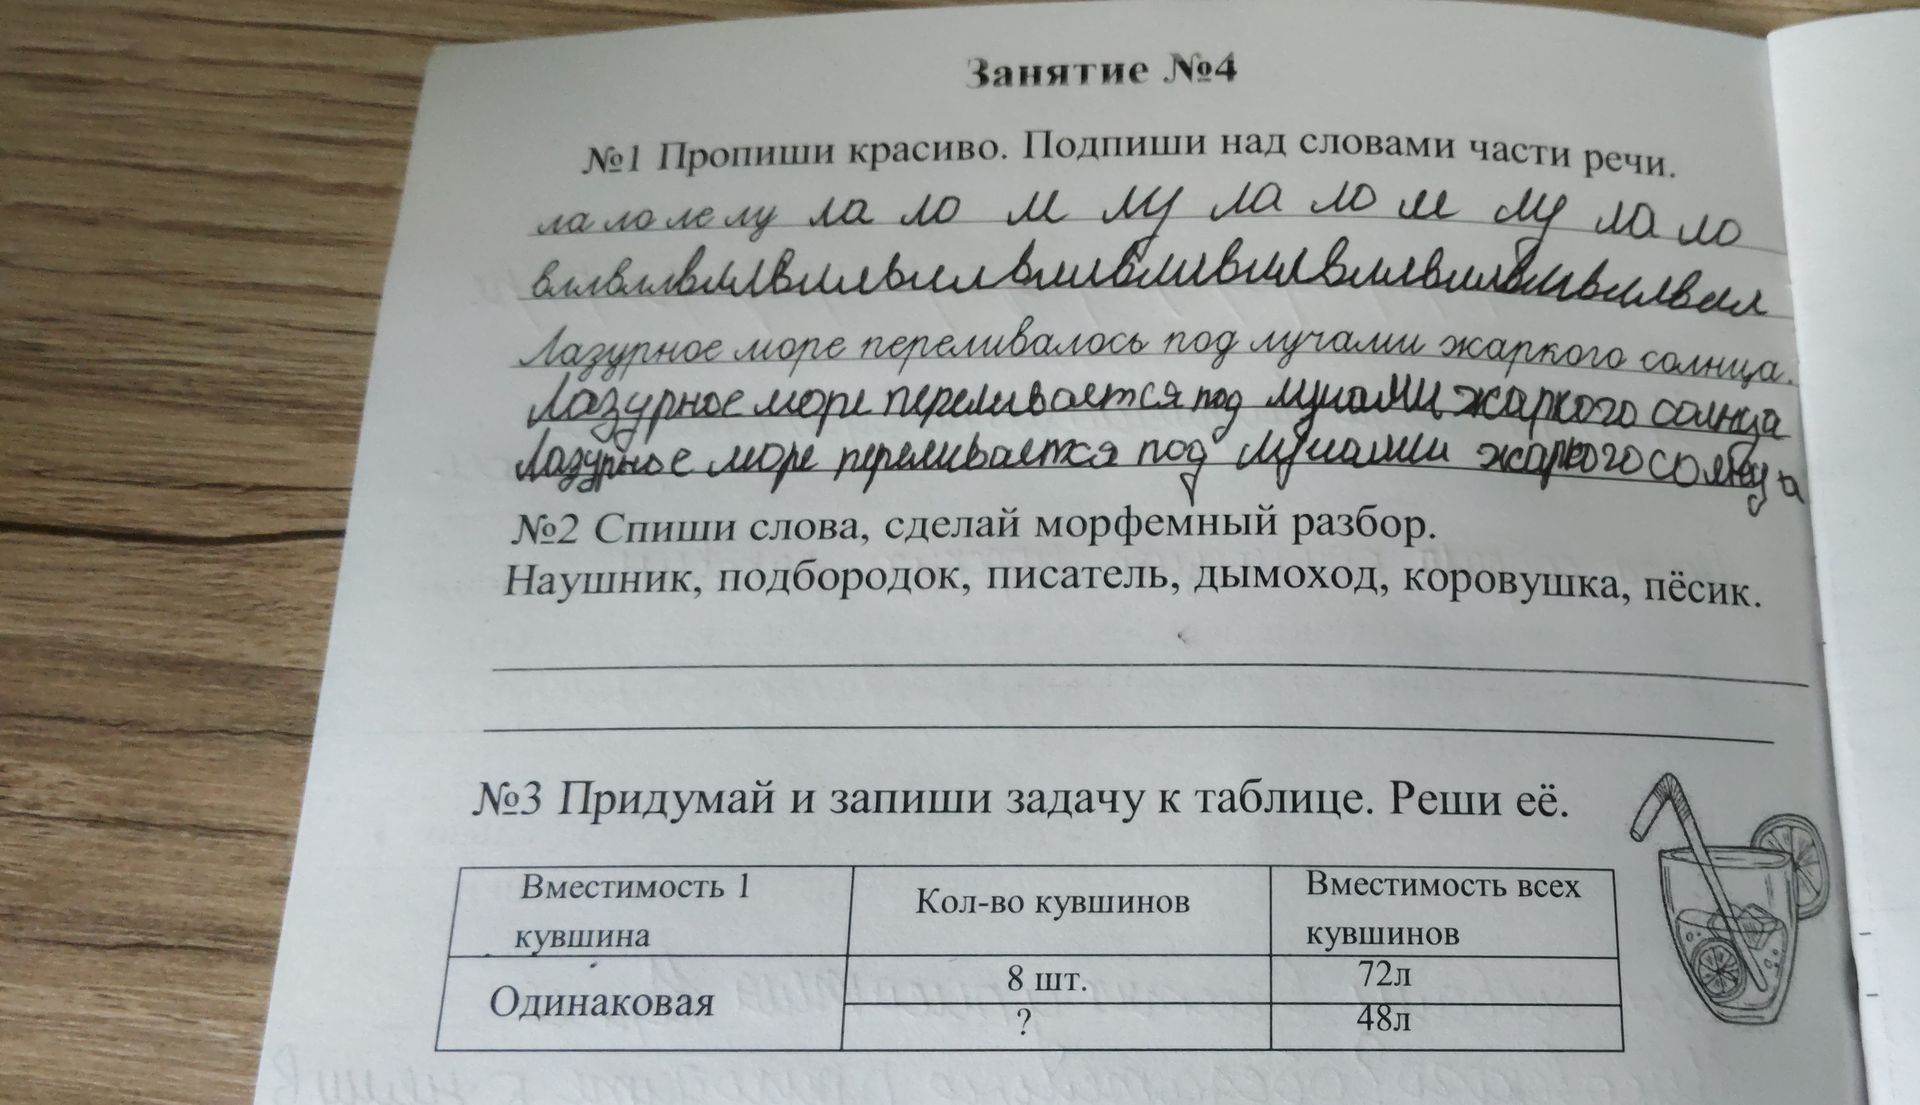 Занятие №4
№1 Пропиши красиво. Подпиши над словами части речи.
ла ло ле лу ла ло ле лу ла ло ле лу ла ло
Лазурное море переливалось под лучами жаркого солнца.
Лазурное море переливается под лучами жаркого солнца
Лазурное море переливается под лучами жаркого солнца
№2 Спиши слова, сделай морфемный разбор.
Наушник, подбородок, писатель, дымоход, коровушка, пёсик.
№3 Придумай и запиши задачу к таблице. Реши её.
Вместимость 1 кувшина
Кол-во кувшинов
Вместимость всех кувшинов
Одинаковая
8 шт.
72л
?
48л